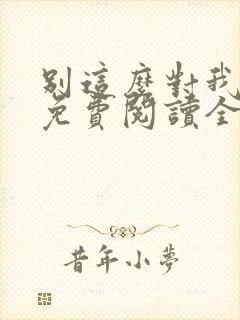 別這麼對我
免費閱讀全
昔年小夢